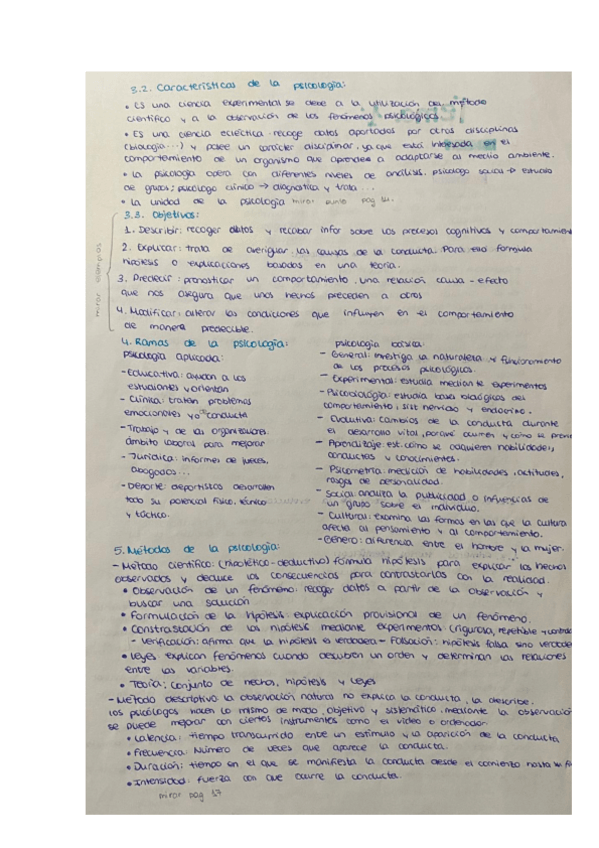 3.2. Características de la psicología:
• Es una ciencia experimental se debe a la utilización del método
científico y a la observación de los fenómenos psicológicos
• Es una ciencia ecléctica recoge datos aportados por otras disciplinas
(biología...) y posee un carácter disciplinar, ya que está interesada en el
comportamiento de un organismo que aprende a adaptarse al medio ambiente.
• La psicología opera con diferentes niveles de análisis, psicólogo social → estudio
de grupos; psicólogo clínico → diagnostica y trata...
• La unidad de la psicología mirar punto pag
3.3. Objetivos:
mirar ejemplos
1. Describir: recoger datos y recabar infor sobre los procesos cognitivos y comportamien
2. Explicar: trata de averiguar las causas de la conducta. Para eso formula
hipótesis o explicaciones basadas en una teoría.
3. Predecir: pronosticar un comportamiento, una relación causa - efecto
que nos asegura que unos hechos preceden a otros
4. Modificar: alterar las condiciones que influyen en el comportamiento
de manera predecible.
4. Ramas de la psicología:
Psicología aplicada:
- Educativa: ayudan a los
estudiantes y orientan
- Clínica: tratan problemas
emocionales y/o conducta
- Trabajo y de las organizaciones.
ámbito laboral para mejorar
- Jurídica: informes de jueces,
abogados...
- Deporte: deportistas desarrollen
todo su potencial físico, técnico
y táctico.
psicología básica:
- General: investiga la naturaleza y funcionamiento
de los procesos psicológicos.
- Experimental: estudia mediante experimentos
- Psicobiología: estudia bases biológicas del
comportamiento, sist nervioso y endocrino.
- Evolutiva: cambios de la conducta durante
el desarrollo vital, porqué ocurren y cómo se
- Aprendizaje: est. cómo se adquieren habilidades,
conductas y conocimientos.
- Psicometría: medición de habilidades, actitudes,
rasgos de personalidad.
- Social: analiza la publicidad o influencias de
un grupo sobre el individuo.
- Cultural: examina las formas en las que la cultura
afecta al pensamiento y al comportamiento.
- Género: diferencia entre el hombre y la mujer.
5. Métodos de la psicología:
- Método científico: (hipotético - deductivo) formula hipótesis para explicar los hechos
observados y deduce las consecuencias para contrastarlas con la realidad.
• Observación de un fenómeno: recoger datos a partir de la observación y
buscar una solución
• Formulación de la hipótesis: explicación provisional de un fenómeno.
• Constrastación de las hipótesis mediante experimentos (rigurosa, repetible y
- Verificación: afirma que la hipótesis es verdadera - Falsación: hipótesis falsa sino
• Leyes explican fenómenos cuando descubren un orden y determinan las relaciones
entre las variables.
• Teoría: conjunto de hechos, hipótesis y leyes
- Método descriptivo la observación natural no explica la conducta, la describe.
los psicólogos hacen lo mismo de modo objetivo y sistemático, mediante la observación
se puede mejorar con ciertos instrumentos como el video o ordenador.
• Latencia: tiempo transcurrido entre un estímulo y la aparición de la conducta
• Frecuencia: Número de veces que aparece la conducta.
• Duración: tiempo en el que se manifiesta la conducta desde el comienzo hasta
• Intensidad: fuerza con que ocurre la conducta.
mirar pag 57